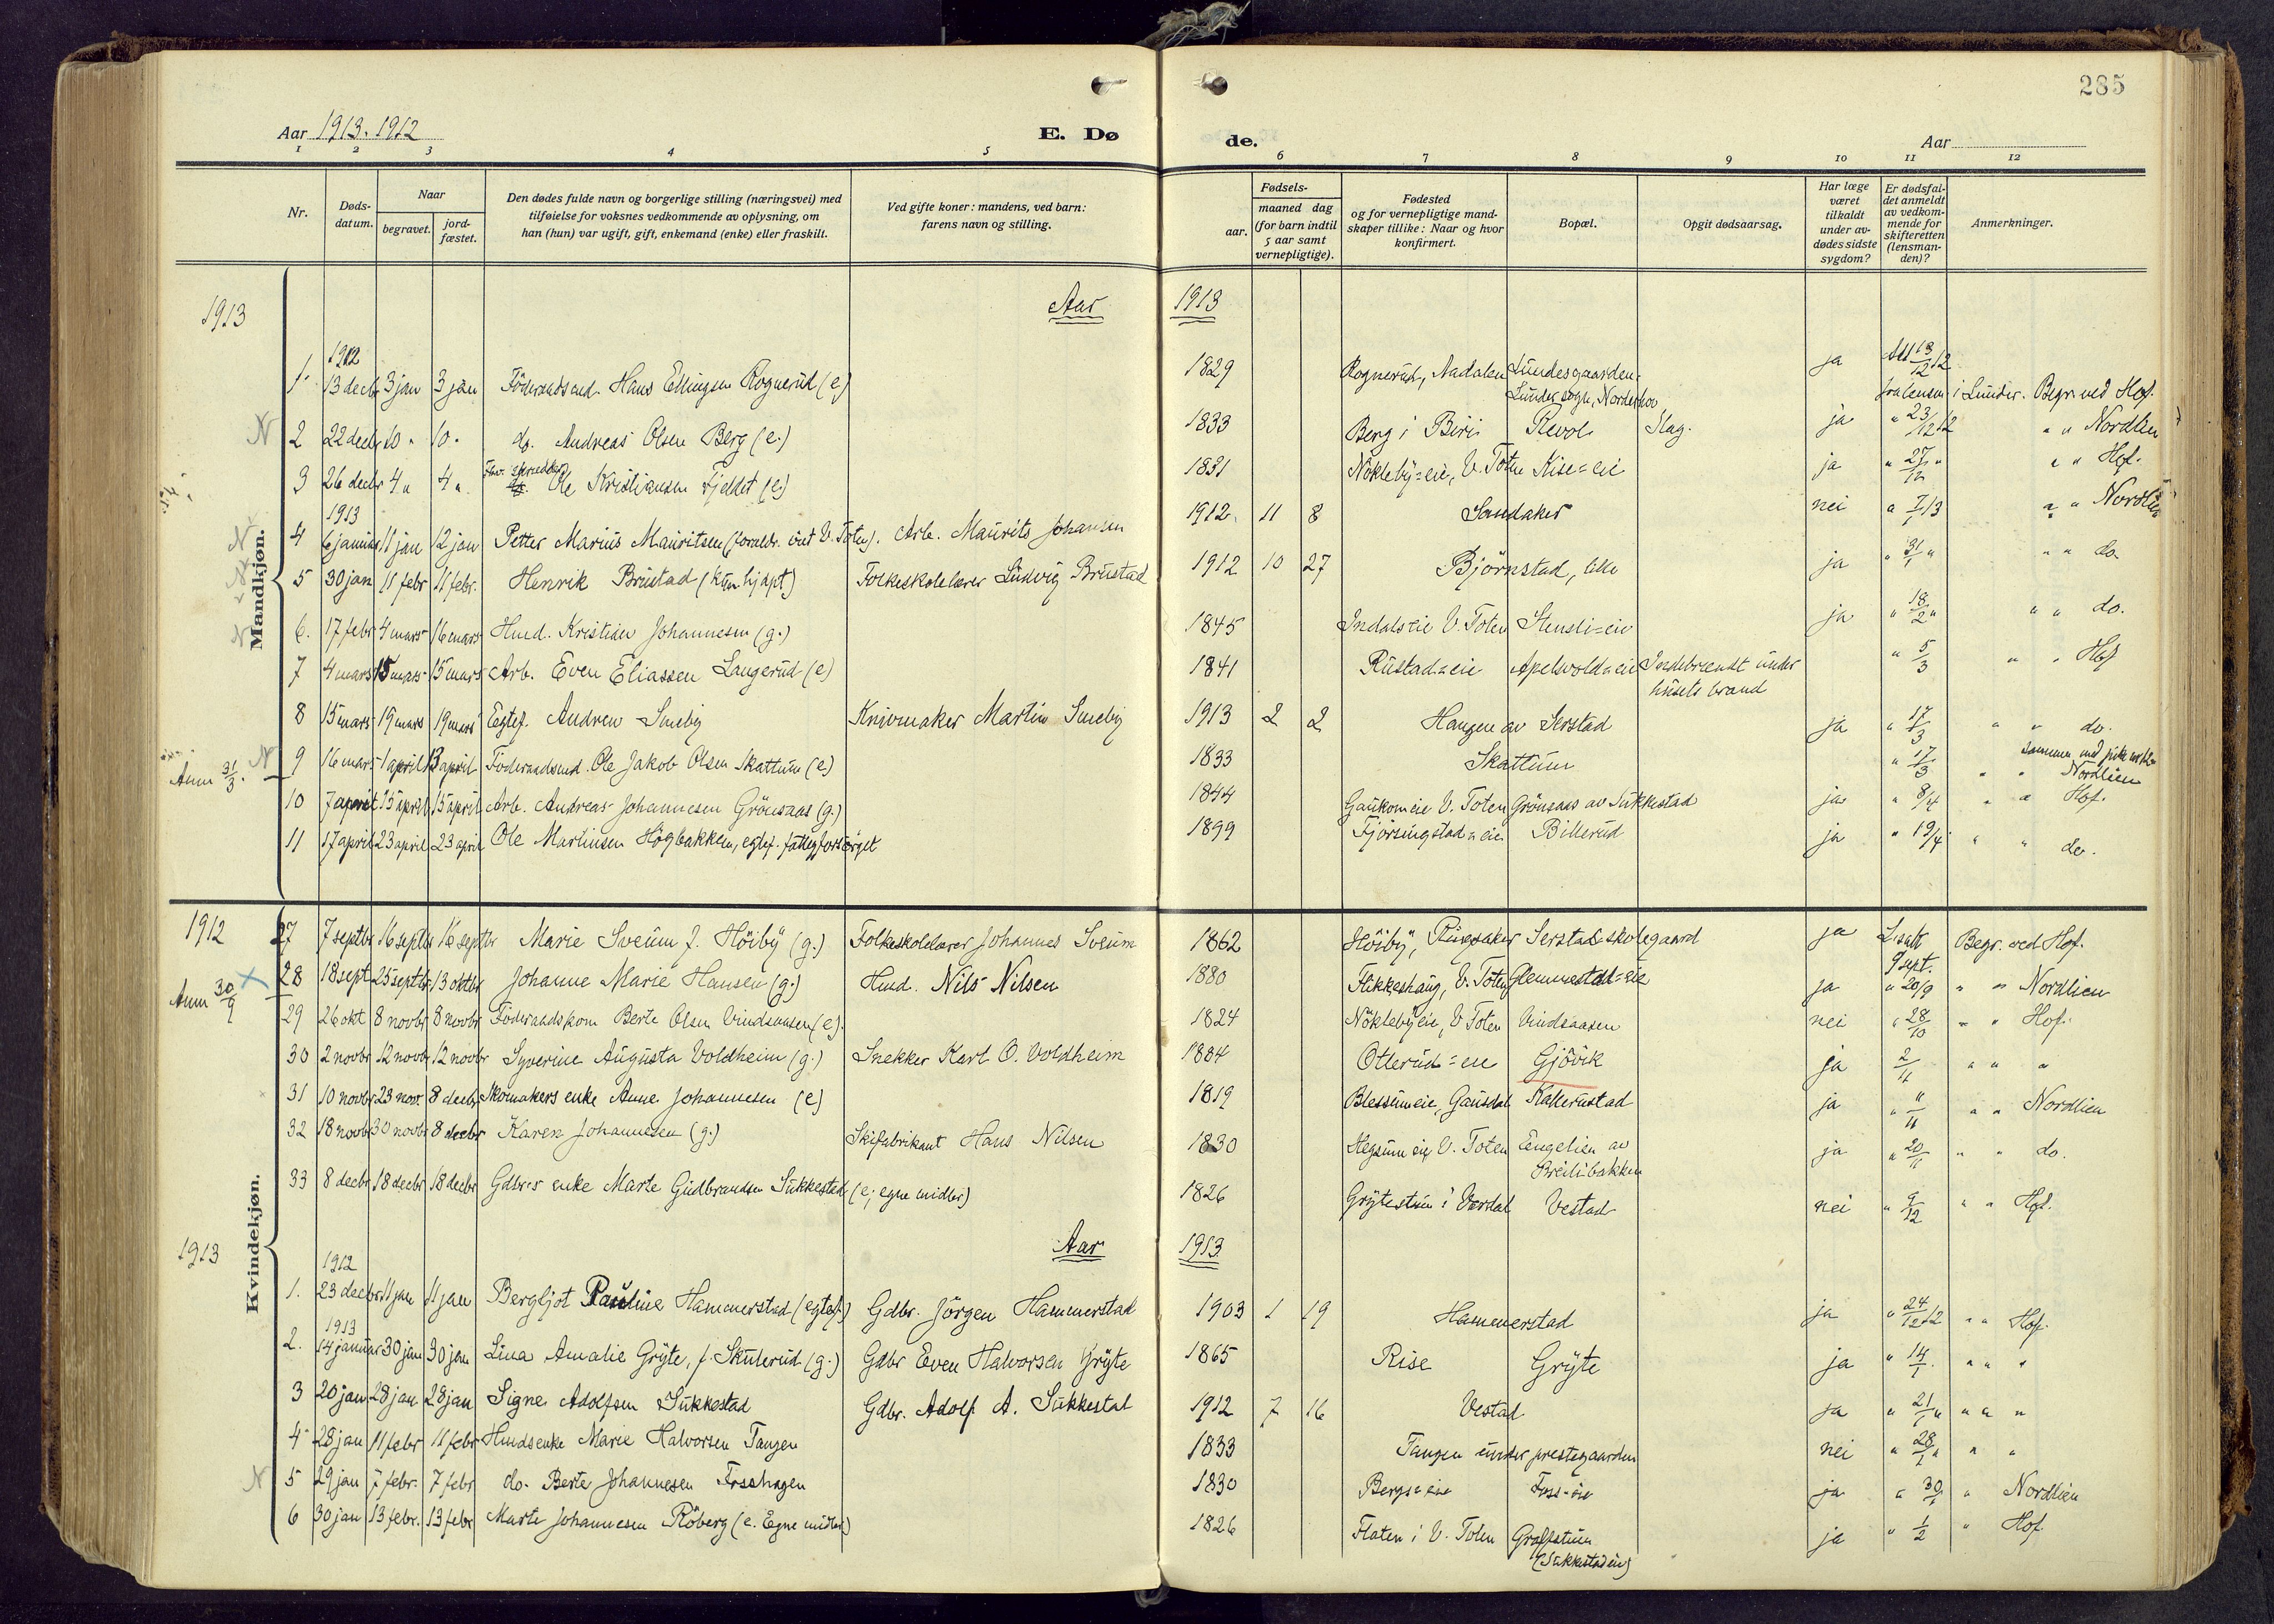 285
Aar 1913. 1912 E. Dø de. Aar
1 2 3 4 5 6 7 8 9 10 11 12
Nr.
Døds-
datum.
Naar
begravet.
jord-
fæstet.
Den dødes fulde navn og borgerlige stilling (næringsvei) med
tilføielse for voksnes vedkommende av oplysning, om
han (hun) var ugift, gift, enkemand (enke) eller fraskilt.
Ved gifte koner: mandens, ved barn:
farens navn og stilling.
Fødsels-
aar.
maaned dag
(for barn indtil
5 aar samt
vernepligtige).
Fødested
og for vernepligtige mand-
skaper tillike: Naar og hvor
konfirmert.
Bopæl.
Opgit dødsaarsag.
Har læge
været
tilkaldt
under av-
dødes sidste
sygdom?
Er dødsfal-
det anmeldt
av vedkom-
mende for
skifteretten
(lensman-
den)?
Anmerkninger.
Mandkjøn.
1913 Aar 1913
1912
1. 13 decb 3 jan 3 jan Föderaadsmd. Hans Ellingsen Rognerud (e) 1829 Rognerud, Nadalen Lundesgaarden ja Att 13/12 12
Lunder sogn, Norderhov fra lensm. i Lunder. Begr. ved Hof.
N 2 22 decb 10 " 10 " do. Andreas Olsen Berg (e.) 1833 Berg i Biri Revol Slag. ja " 23/12 12 " " Nordlien
3 26 decbr 4 " 4 " Fhv. skrædder Ole Kristiansen Fjeldet (e) 1831 Nökleby=eie, V. Toten Kise=eie ja " 27/12 " " " Hof.
1913
N 4 6 januar 11 jan 12 jan Petter Marius Mauritsen (foraldr. vist V. Toten). Arb. Maurits Johansen 1912 11 8 Sandaker nei " 7/1 13 " " Nordlien
N 5 30 jan 11 febr 11 febr. Henrik Brustad (kun hj.døpt) Folkeskolelærer Ludvig Brustad 1912 10 27 Björnstad, lille ja " 31/1 " " " do
N 6. 17 febr 4 mars 16 mars Hmd. Kristian Johannesen (g.) 1845 Indals eie V. Toten Stensli=eie ja " 18/2 " " " do.
7 4 mars 15 mars 15 mars Arb. Even Eliassen Langerud (e) 1841 Rustad=eie Apelsvold=eie Indebrændt under " 5/3 " " Hof
husets brand
8 15 mars 19 mars 19 mars Egtef. Andrew Smeby Knivmaker Martin Smeby 1913 2 2 Haugen av Serstad ja " 17/3 " " do.
N 9 16 mars 1 april 13 april Föderaadsmd. Ole Jakob Olsen Skattum (e.) 1833 Skattum " 17/3 " " Nordlien
Anm 31/3.
10 7 april 15 april 15 april Arb. Andreas Johannesen Grönsaas (g.) 1844 Gaukom eie V. Toten Grönsaas av Sukkestad ja " 8/4 " " Hof.
11 17 april 23 april 23 april Ole Martinsen Högbakken, egtef. fattigforsörget 1899 Fjörsingstad=eie Billerud ja " 19/4 " " do.
Kvindekjøn.
1912 27 7 septbr 16 septbr 16 septbr Marie Sveum f. Höiby (g.) Folkeskolelærer Johannes Sveum 1862 Höiby, Ringsaker Serstad skolegaard ja Begr. ved Hof.
9 sept.
Anm 30/9 28 18 sept 25 septbr 13 oktbr Johanne Marie Hansen (g.) Hmd. Nils Nilsen 1880 Flikkeshaug, V. Toten Glemmestad=eie ja " 20/9 " " Nordlien
29 26 okt 8 novbr 8 novbr Föderaadskone Berte Olsen Vindsaasen (e). 1824 Nökleby eie, V Toten Vindsaasen nei " 28/10 " " Hof.
30 2 novbr 12 novbr 12 novbr Syverine Augusta Voldheim (g.) Snekker Karl O. Voldheim 1884 Otterud=eie Gjövik ja 2/11 " " "
31 10 novbr 23 novr 8 decbr Skomakers enke Anne Johannesen (e) 1819 Blessum eie, Gausdal Kakerustad ja " 11/11 " " Nordlien
32 18 novb 30 novbr 8 decbr Karen Johannesen (g.) Skifabrikant Hans Nilsen 1830 Hegsum eie V. Toten Engelien av ja " 20/11 " " do.
Sreilibakken
33 8 decbr 18 decbr 18 decbr Gdbr.s enke Marte Gudbrandsen Sukkestad (e; egne midler) 1826 Grytestuen i Vardal Vestad nei " 9/12 " " Hof.
1913 Aar 1913
1912
1. 23 decbr 11 jan 11 jan Bergljot Pauline Hammerstad (egtef.) Gdbr. Jörgen Hammerstad 1903 1 19 Hammerstad ja " 24/12 12 " " Hof.
1913
2. 14 januar 30 jan 30 jan Lina Amalie Gryte, f. Skulerud (g.) Gdbr Even Halvorsen Gryte 1865 Rise Gryte ja " 14/1. " " "
3 20 jan 28 jan 28 jan Signe Adolfsen Sukkestad Gdbr. Adolf A. Sukkestad 1912 7 16 Vestad ja " 21/1 " " " "
4 28 jan 11 febr 11 febr Hmdsenke Marie Halvorsen Tangen 1833 Tangen under prestegaarden nei " 28/1 " " "
N 5 29 jan 7 febr. 7 febr do. Berte Johannesen Fosshagen 1830 Bergs=eie Foss=eie ja " 30/1 " Nordlien
6 30 jan 13 febr. 13 febr Marte Johannesen Röberg (e. Egne midler) 1826 Flaten i V. Toten Graffstuen ja " 1/2 " Hof.
(Sukkestadeie)